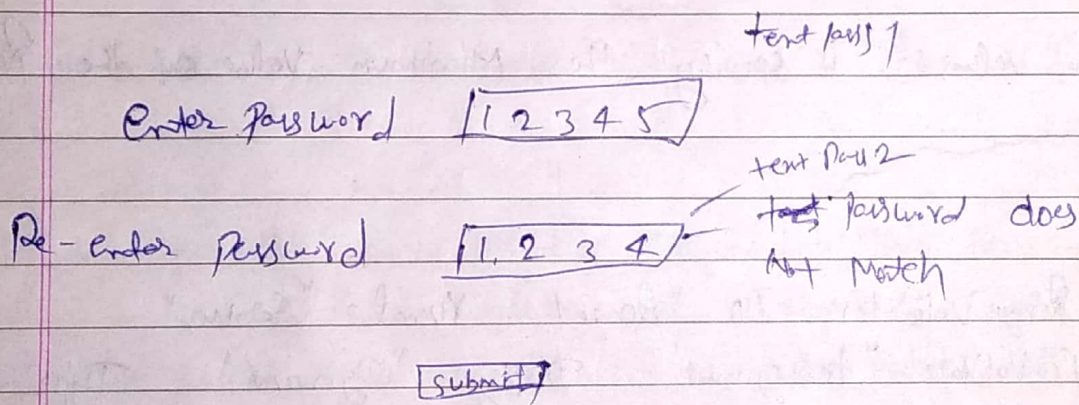 text pass 1
Enter Password 1 2 3 4 5
text Pass 2
Re-enter password 1 2 3 4 Password does
Not Match
Submit